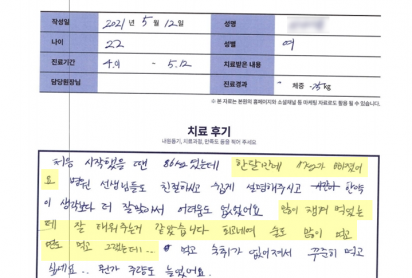 작성일 2021년 5월 12일 성명
나이 22 성별 여
진료기간 4.9 - 5.12 치료받은 내용
담당원장님 진료경과 - 체중 -25kg
※ 본 자료는 본원의 홈페이지와 소셜채널 등 마케팅 자료로도 활용 될 수 있습니다.
치료 후기
내원동기, 치료과정, 만족도 등을 적어 주세요
처음 시작했을 땐 86 였는데 한달만에 빠졌어
요 병원 선생님들도 친절하시고 쉽게 설명해주시고 한약
이 생각보다 더 잘맞아서 어려움도 없었어요 많이 챙겨 먹었는
데 잘 태워주는것 같았습니다 술도 많이 먹고
먹고 그랬는데.. 먹고 숙취가 없어져서 꾸준히 먹고
뭔가